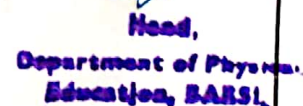 Head,
Department of Physical
Education, BARSI.